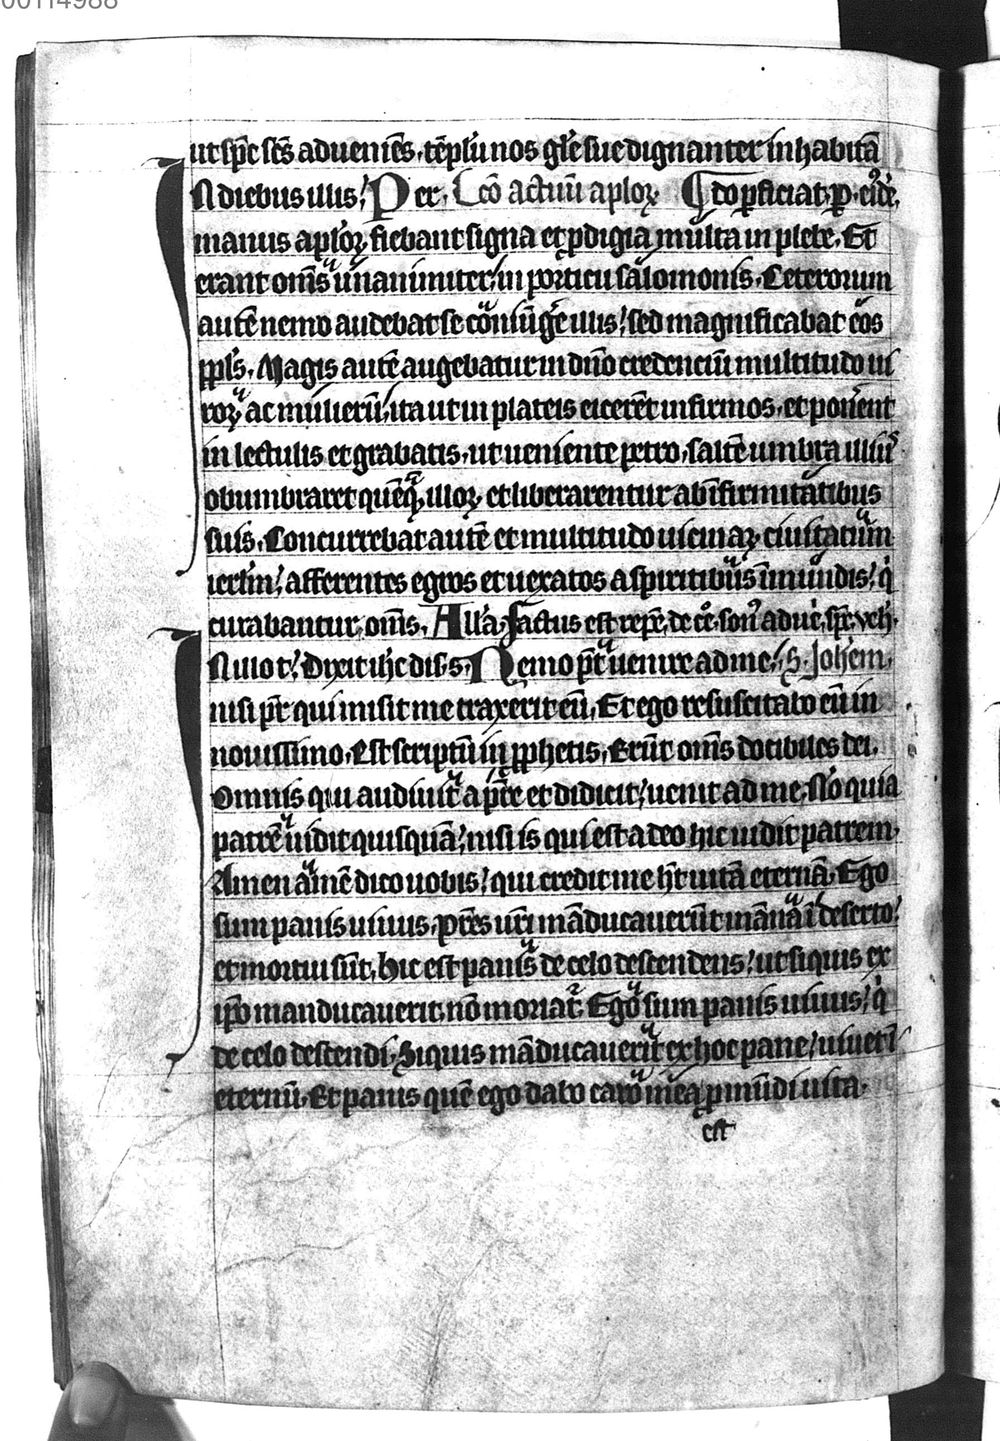 00114988
ut spc scs adueniēs. tēplū nos gle sue dignanter inhabitā
N diebus illis. Per Lco actuū aploꝝ do ꝑficiat. ꝑ. eiꝰdē.
manus aploꝝ fiebant signa et ꝓdigia multa in plebe. Et
erant oms unanimiter in porticu salomonis. Ceterorum
autē nemo audebat se coniūgere illis. sed magnificabat eos
ppls. Magis autē augebatur in dno credenciū multitudo ui
roꝝ ac mulierū. ita ut in plateis eicerēt infirmos. et ponerent
in lectulis et grabatis. ut ueniente petro. saltē umbra illius
obumbraret quēqꝫ illoꝝ et liberarentur ab infirmitatibus
suis. Concurrebat autē et multitudo uicinaꝝ ciuitatum
ierlm. afferentes egros et uexatos a spiritibus īmundis. q̇
curabantur oms. Alla. Factus est repē. de ce. son. aduē. spc. veh.
N illo t. Dixit ihc dis. s. Nemo pt uenire ad me. S. Johem.
nisi pr qui misit me traxerit eū. Et ego resuscitabo eū in
nouissimo. Est scriptū in ꝓphetis. Erūt oms docibiles dei.
Omnis qui audiuit a pre et didicit. uenit ad me. Nō quia
patrē uidit quisquā. nisi is qui est a deo hic uidit patrem.
Amen amē dico uobis. qui credit in me ht uitā eternā. Ego
sum panis uiuus. Pres uri māducauerūt manna ī deserto.
et mortui sūt. hic est panis de celo descendens. ut siquis ex
ipo manducauerit. nō moriat. Ego sum panis uiuus. q̇
de celo descendi. Siquis māducauerit ex hoc pane. uiuet ī
eternū. Et panis quē ego dabo caro mea ꝓ mūdi uita.
est